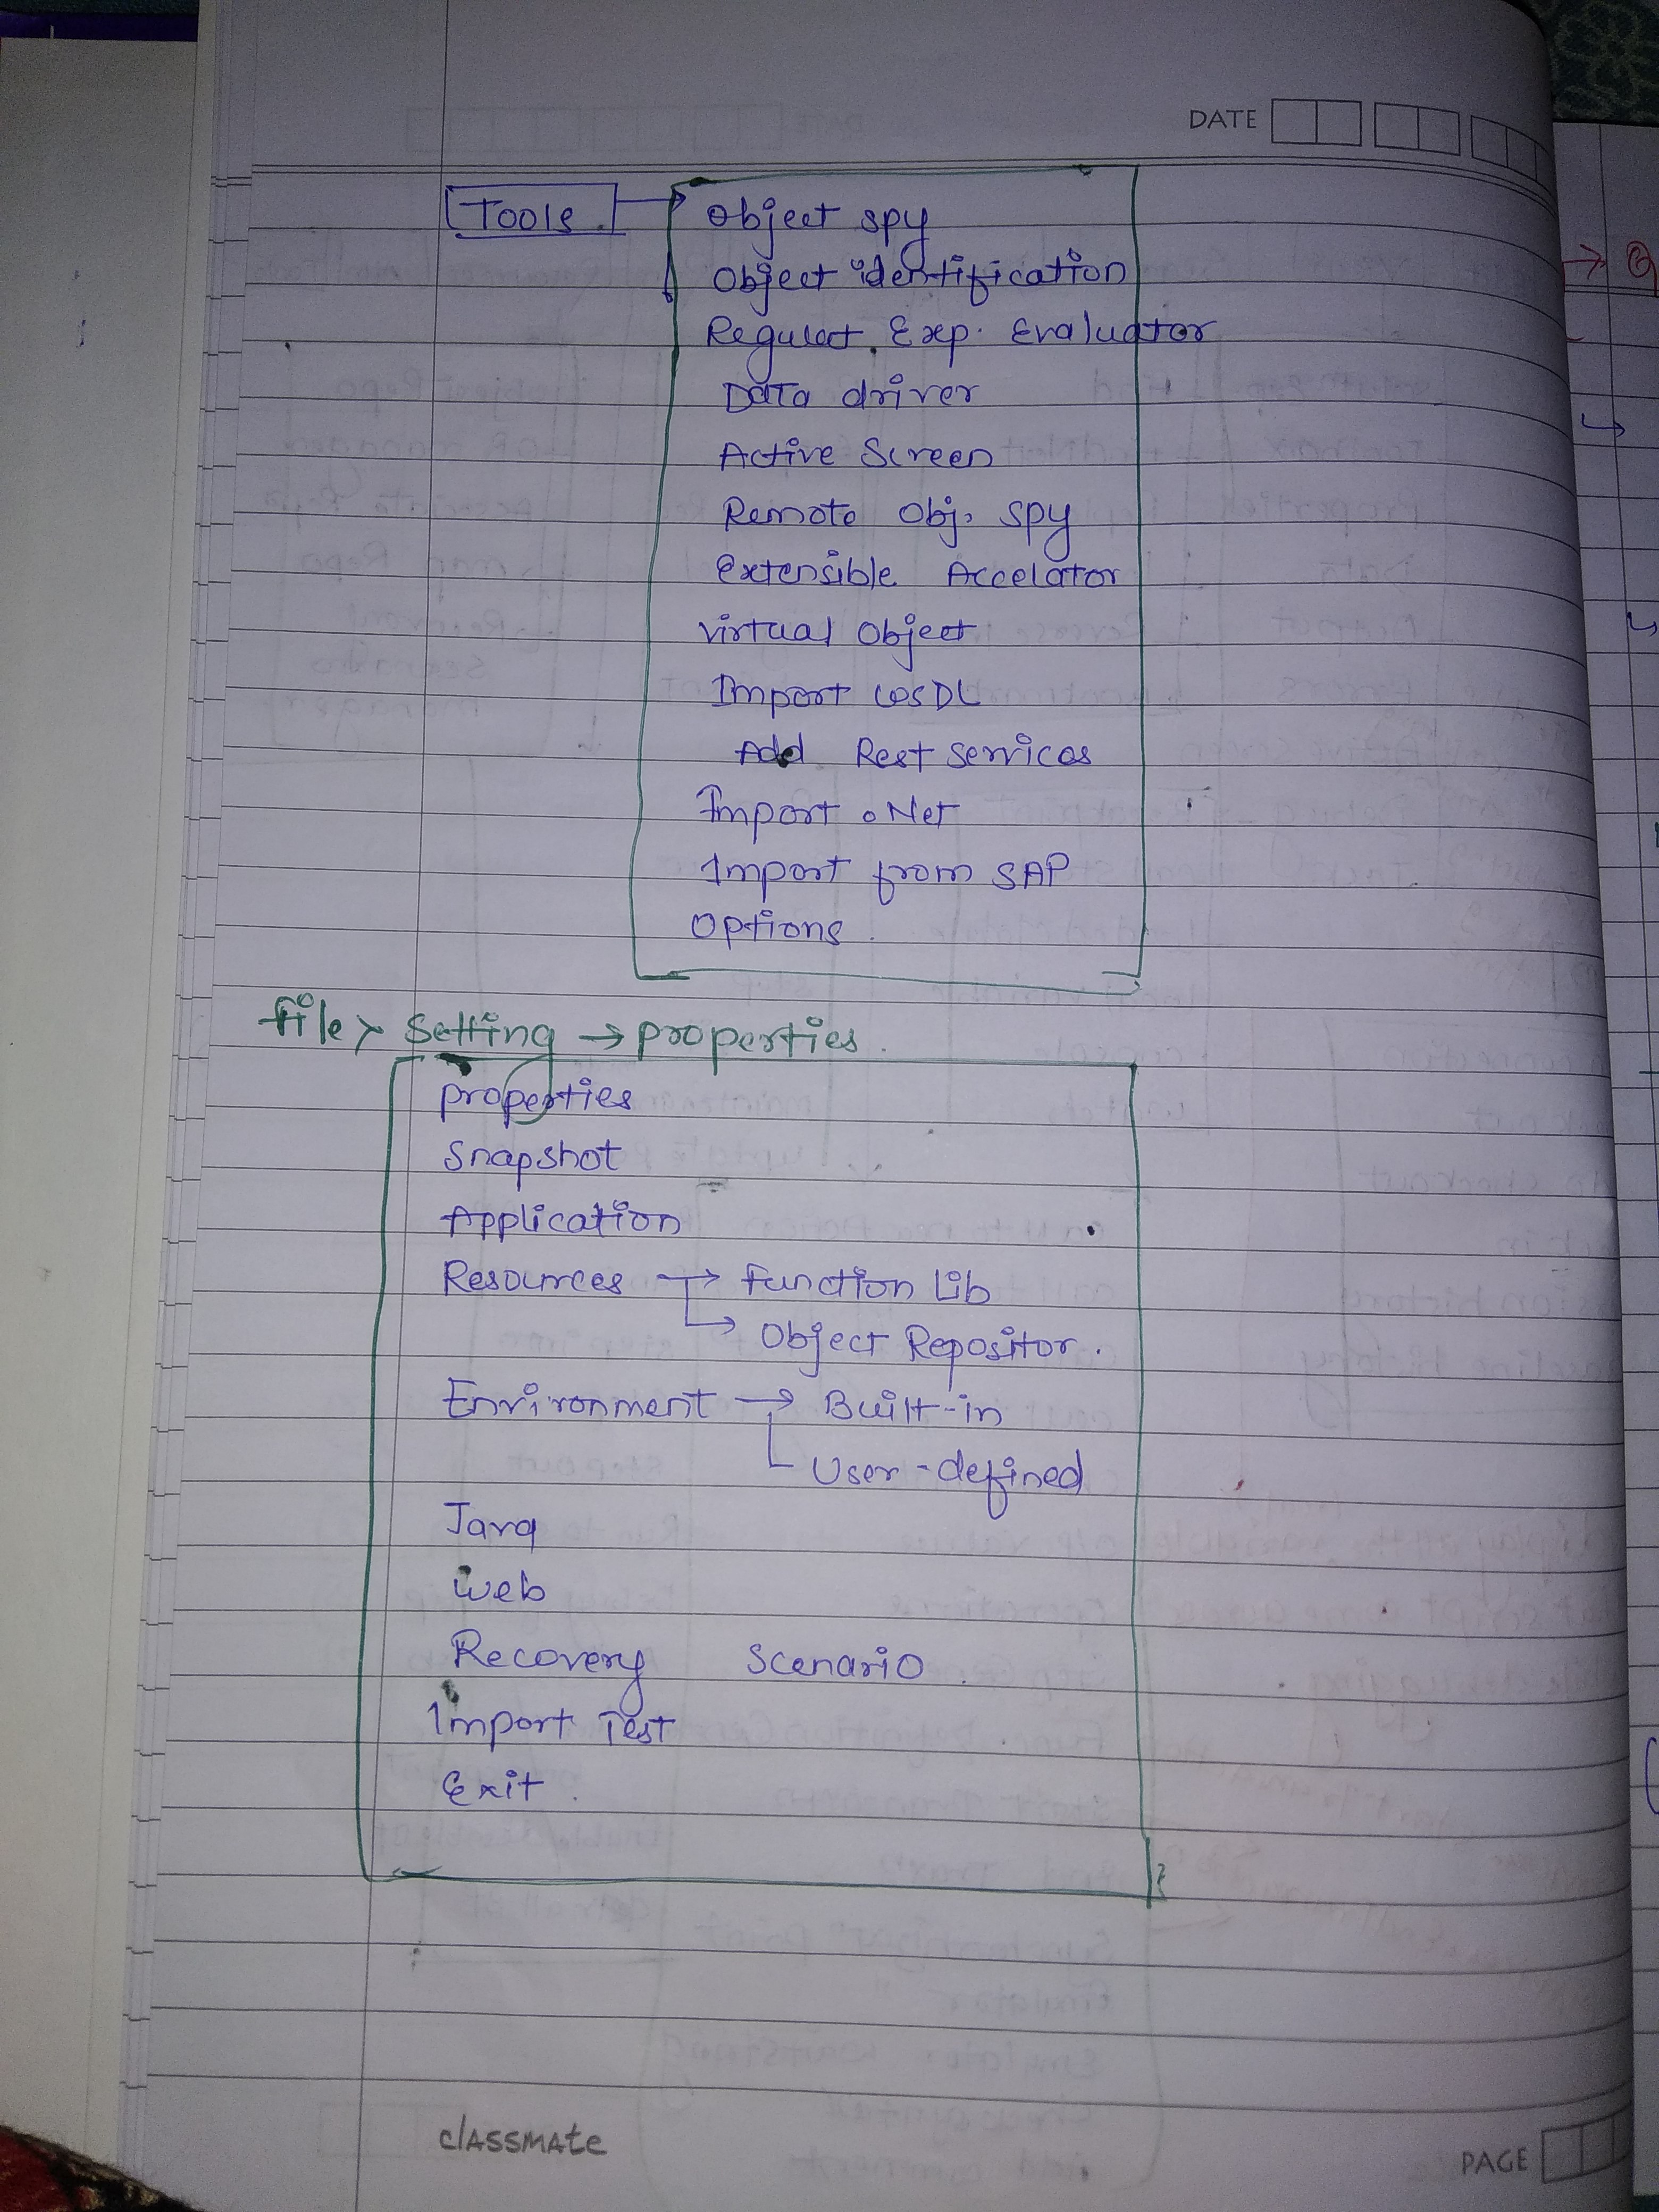 DATE
Tools → Object spy
Object identification
Regular Exp. Evaluator
Data driver
Active Screen
Remote Obj. Spy
Extensible Accelator
Virtual Object
Import WSDL
Add Rest Services
Import .Net
Import from SAP
Options
file > Setting → properties.
properties
Snapshot
Application
Resources → Function Lib
→ Object Repositor.
Environment → Built-in
User-defined
Java
Web
Recovery Scenario
Import Test
Exit.
classmate
PAGE